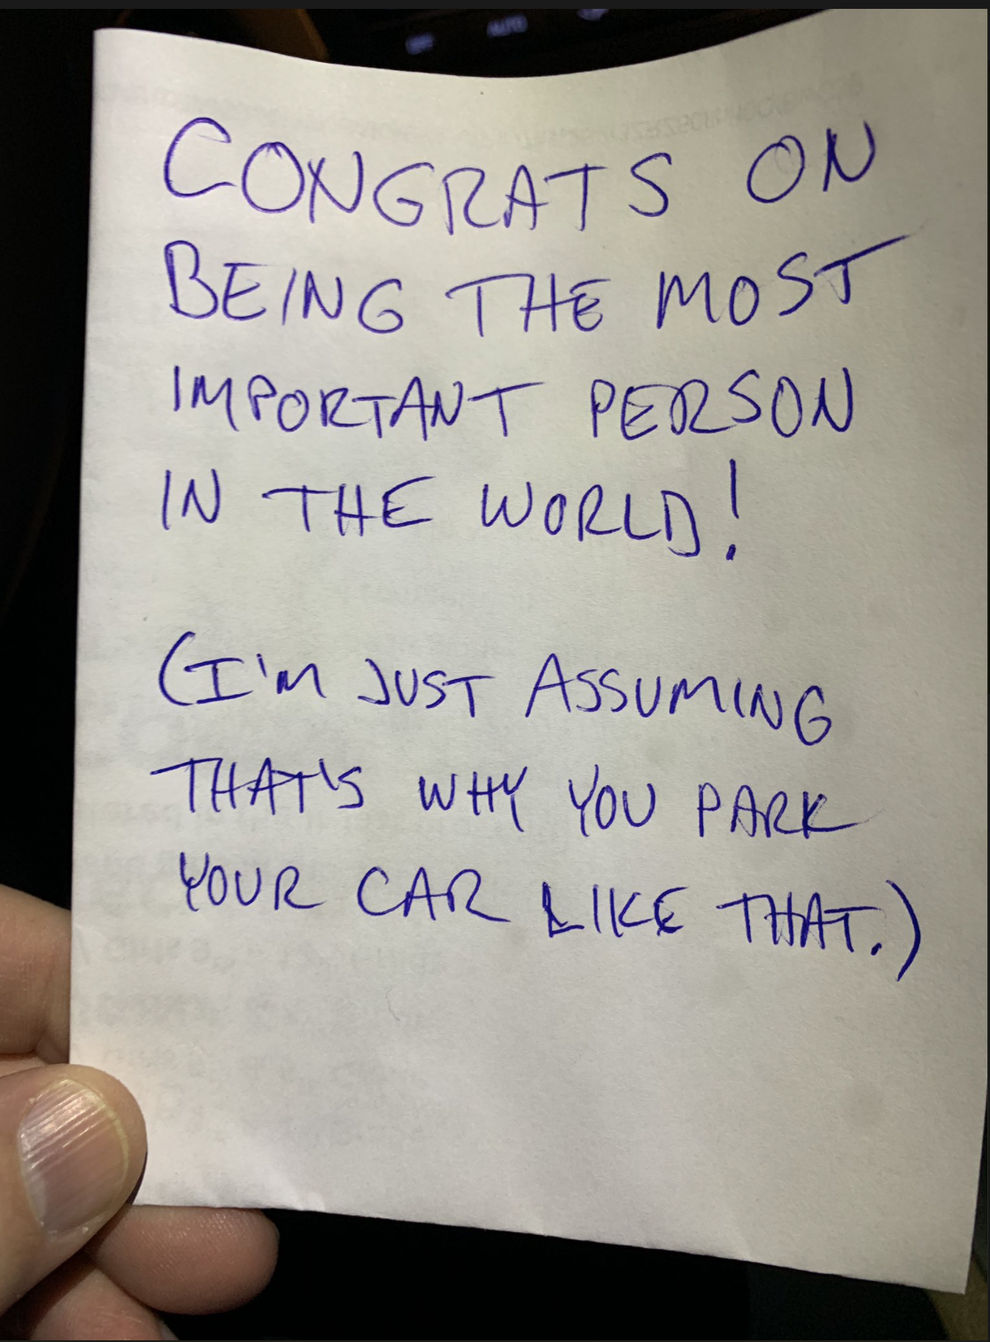 CONGRATS ON
BEING THE MOST
IMPORTANT PERSON
IN THE WORLD!
(I'M JUST ASSUMING
THAT'S WHY YOU PARK
YOUR CAR LIKE THAT.)